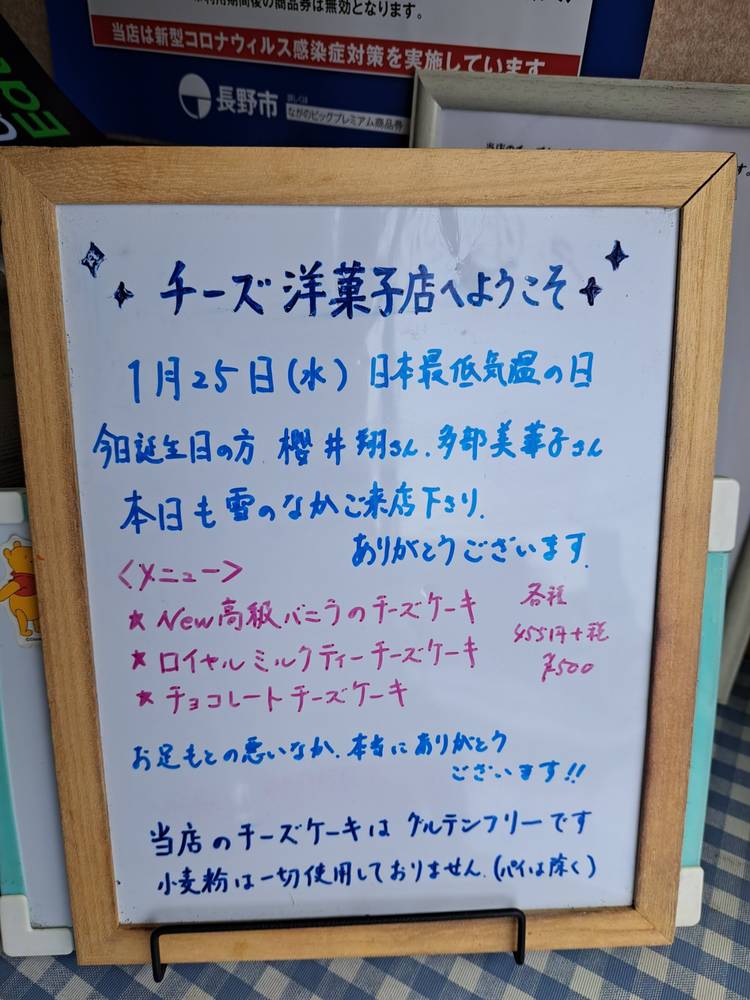 利用期間後の商品券は無効となります。
当店は新型コロナウィルス感染症対策を実施しています
長野市
詳しくは
ながのビッグプレミアム商品券
チーズ洋菓子店へようこそ
1月25日(水) 日本最低気温の日
今日誕生日の方 櫻井翔さん、多部美華子さん
本日も雪のなかご来店下さり、
ありがとうございます。
<メニュー>
★ New高級バニラのチーズケーキ
★ ロイヤルミルクティーチーズケーキ
★ チョコレートチーズケーキ
各種
455円+税
¥500
お足もとの悪いなか、本当にありがとう
ございます!!
当店のチーズケーキは グルテンフリーです
小麦粉は一切使用しておりません。(パイは除く)